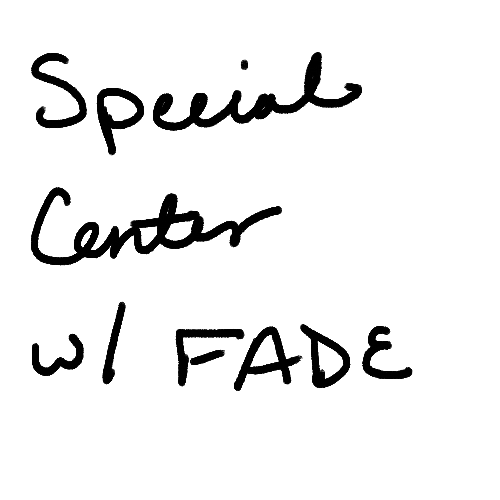 Special
Center
w/ FADE